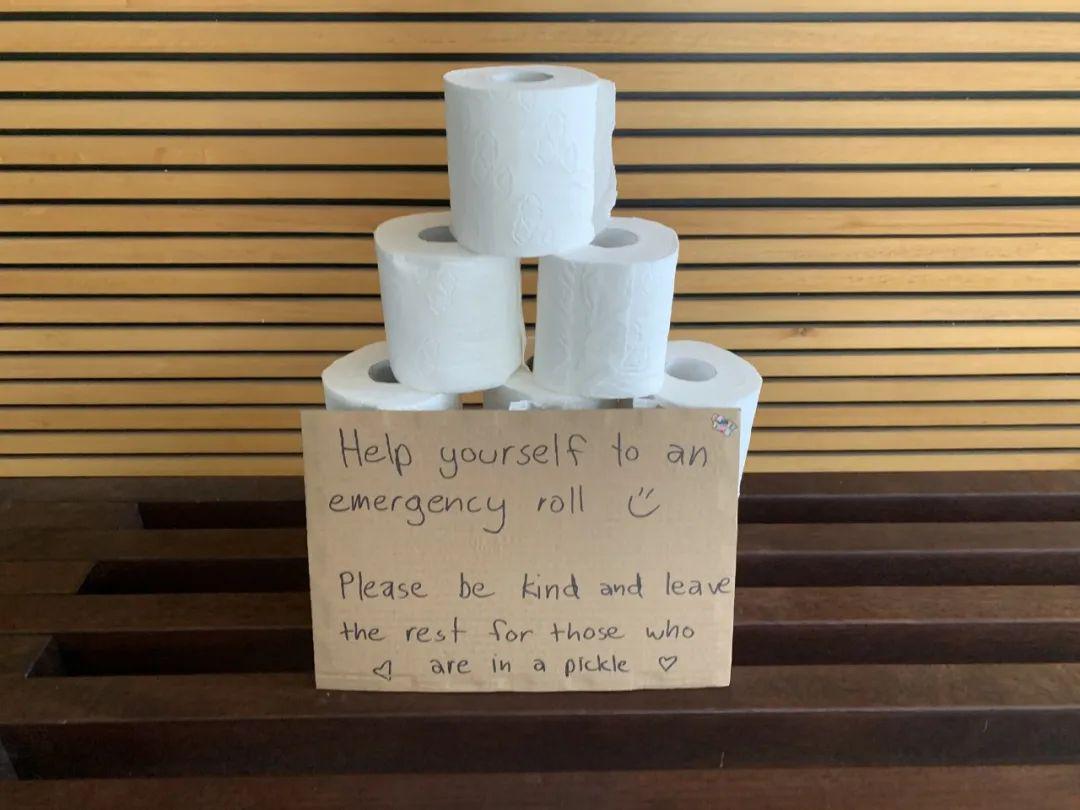 Help yourself to an
emergency roll
Please be kind and leave
the rest for those who
are in a pickle